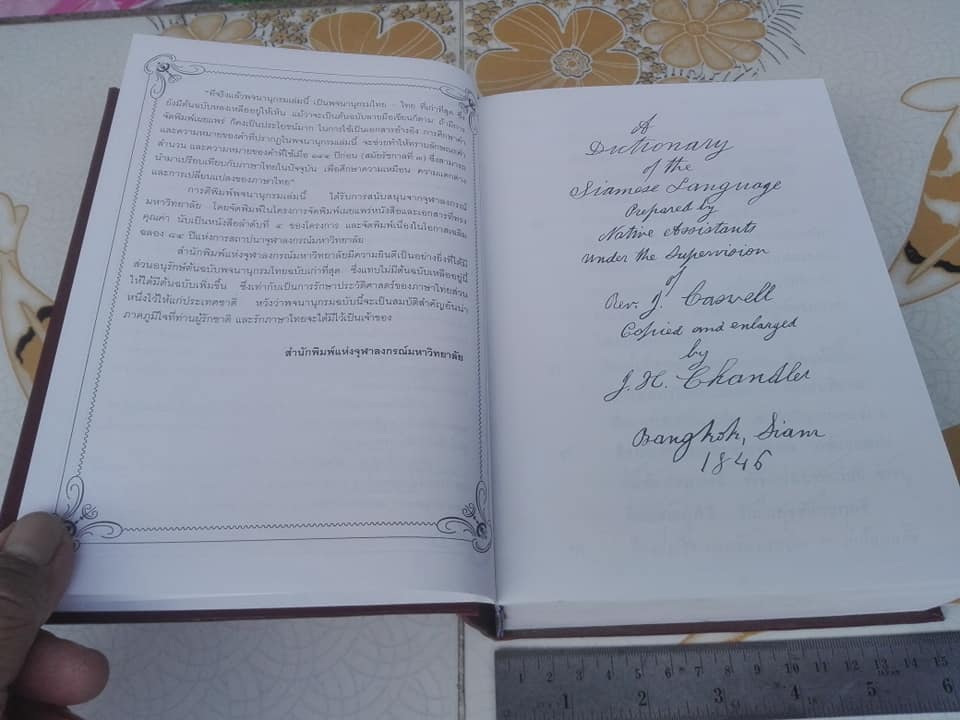 "ที่จริงแล้วพจนานุกรมเล่มนี้ เป็นพจนานุกรมไทย - ไทย ที่เก่าที่สุด ซึ่ง
ยังมีต้นฉบับหลงเหลืออยู่ให้เห็น แม้ว่าจะเป็นต้นฉบับลายมือเขียนก็ตาม ถ้ามีการ
จัดพิมพ์เผยแพร่ ก็คงเป็นประโยชน์มาก ในการใช้เป็นเอกสารอ้างอิง การศึกษาคำ
และความหมายของคำที่ปรากฏในพจนานุกรมเล่มนี้ จะช่วยทำให้ทราบลักษณะคำ
สำนวน และความหมายของคำที่ใช้เมื่อ ๑๕๔ ปีก่อน (สมัยรัชกาลที่ ๓) ซึ่งสามารถ
นำมาเปรียบเทียบกับภาษาไทยในปัจจุบัน เพื่อศึกษาความเหมือน ความแตกต่าง
และการเปลี่ยนแปลงของภาษาไทย"
การตีพิมพ์พจนานุกรมเล่มนี้ ได้รับการสนับสนุนจากจุฬาลงกรณ์
มหาวิทยาลัย โดยจัดพิมพ์ในโครงการจัดพิมพ์เผยแพร่หนังสือและเอกสารที่ทรง
คุณค่า นับเป็นหนังสือลำดับที่ ๕ ของโครงการ และจัดพิมพ์เนื่องในโอกาสเฉลิม
ฉลอง ๘๔ ปีแห่งการสถาปนาจุฬาลงกรณ์มหาวิทยาลัย
สำนักพิมพ์แห่งจุฬาลงกรณ์มหาวิทยาลัยมีความยินดีเป็นอย่างยิ่งที่ได้มี
ส่วนอนุรักษ์ต้นฉบับพจนานุกรมไทยฉบับเก่าที่สุด ซึ่งแทบไม่มีต้นฉบับเหลืออยู่นี้
ให้ได้มีต้นฉบับเพิ่มขึ้น ซึ่งเท่ากับเป็นการรักษาประวัติศาสตร์ของภาษาไทยส่วน
หนึ่งไว้ให้แก่ประเทศชาติ หวังว่าพจนานุกรมฉบับนี้จะเป็นสมบัติสำคัญอันน่า
ภาคภูมิใจที่ท่านผู้รักชาติ และรักภาษาไทยจะได้มีไว้เป็นเจ้าของ
สำนักพิมพ์แห่งจุฬาลงกรณ์มหาวิทยาลัย
A
Dictionary
of the
Siamese Language
Prepared by
Native Assistants
under the Supervision
of
Rev. J. Caswell
Copied and enlarged
by
J. H. Chandler
Bangkok, Siam
1846
1 2 3 4 5 6 7 8 9 10 11 12 13 14 15
1 2 3 4 5 6